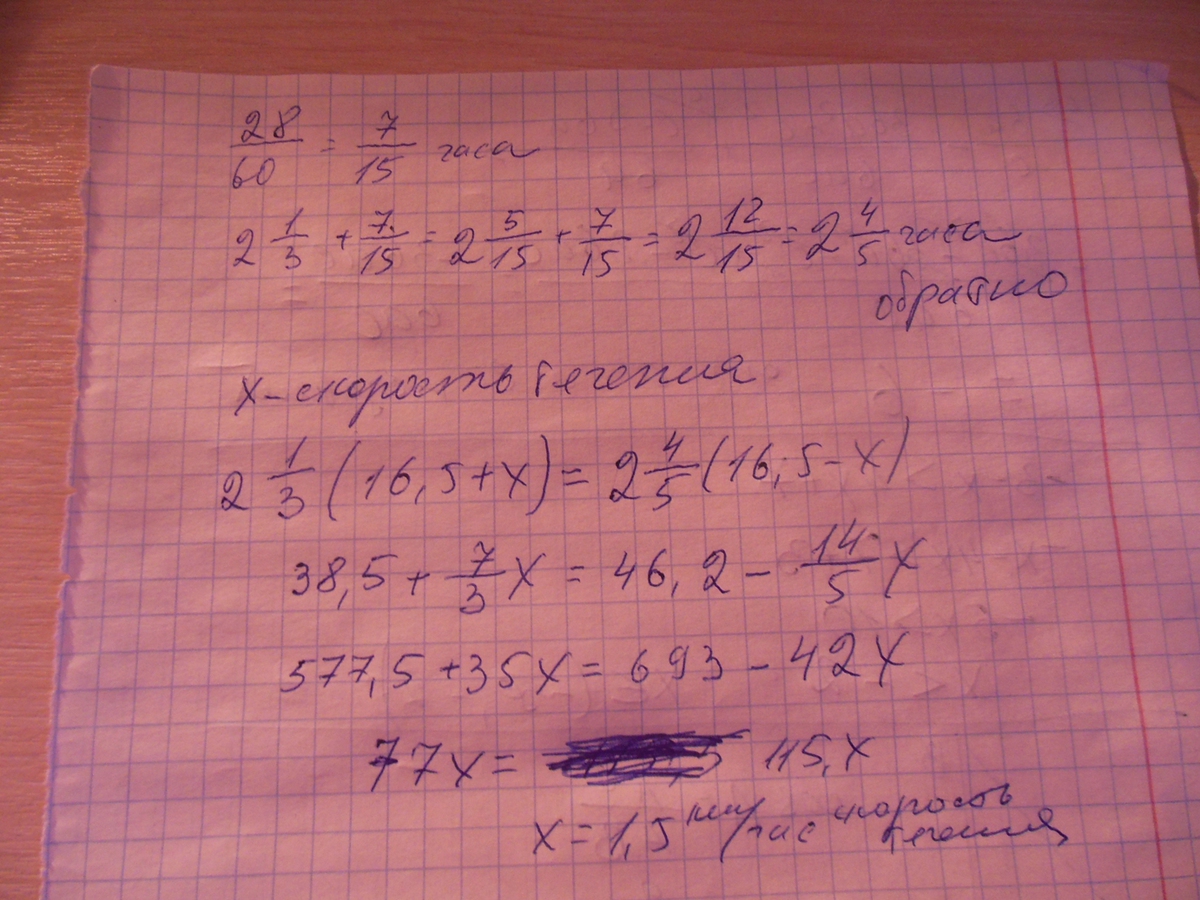 28/60 = 7/15 часа
2 1/3 + 7/15 = 2 5/15 + 7/15 = 2 12/15 = 2 4/5 часа
обратно
х - скорость течения
2 1/3 (16,5+х) = 2 4/5 (16,5-х)
38,5 + 7/3 х = 46,2 - 14/5 х
577,5 + 35х = 693 - 42х
77х = 115,х
х = 1,5 км/час скорость течения